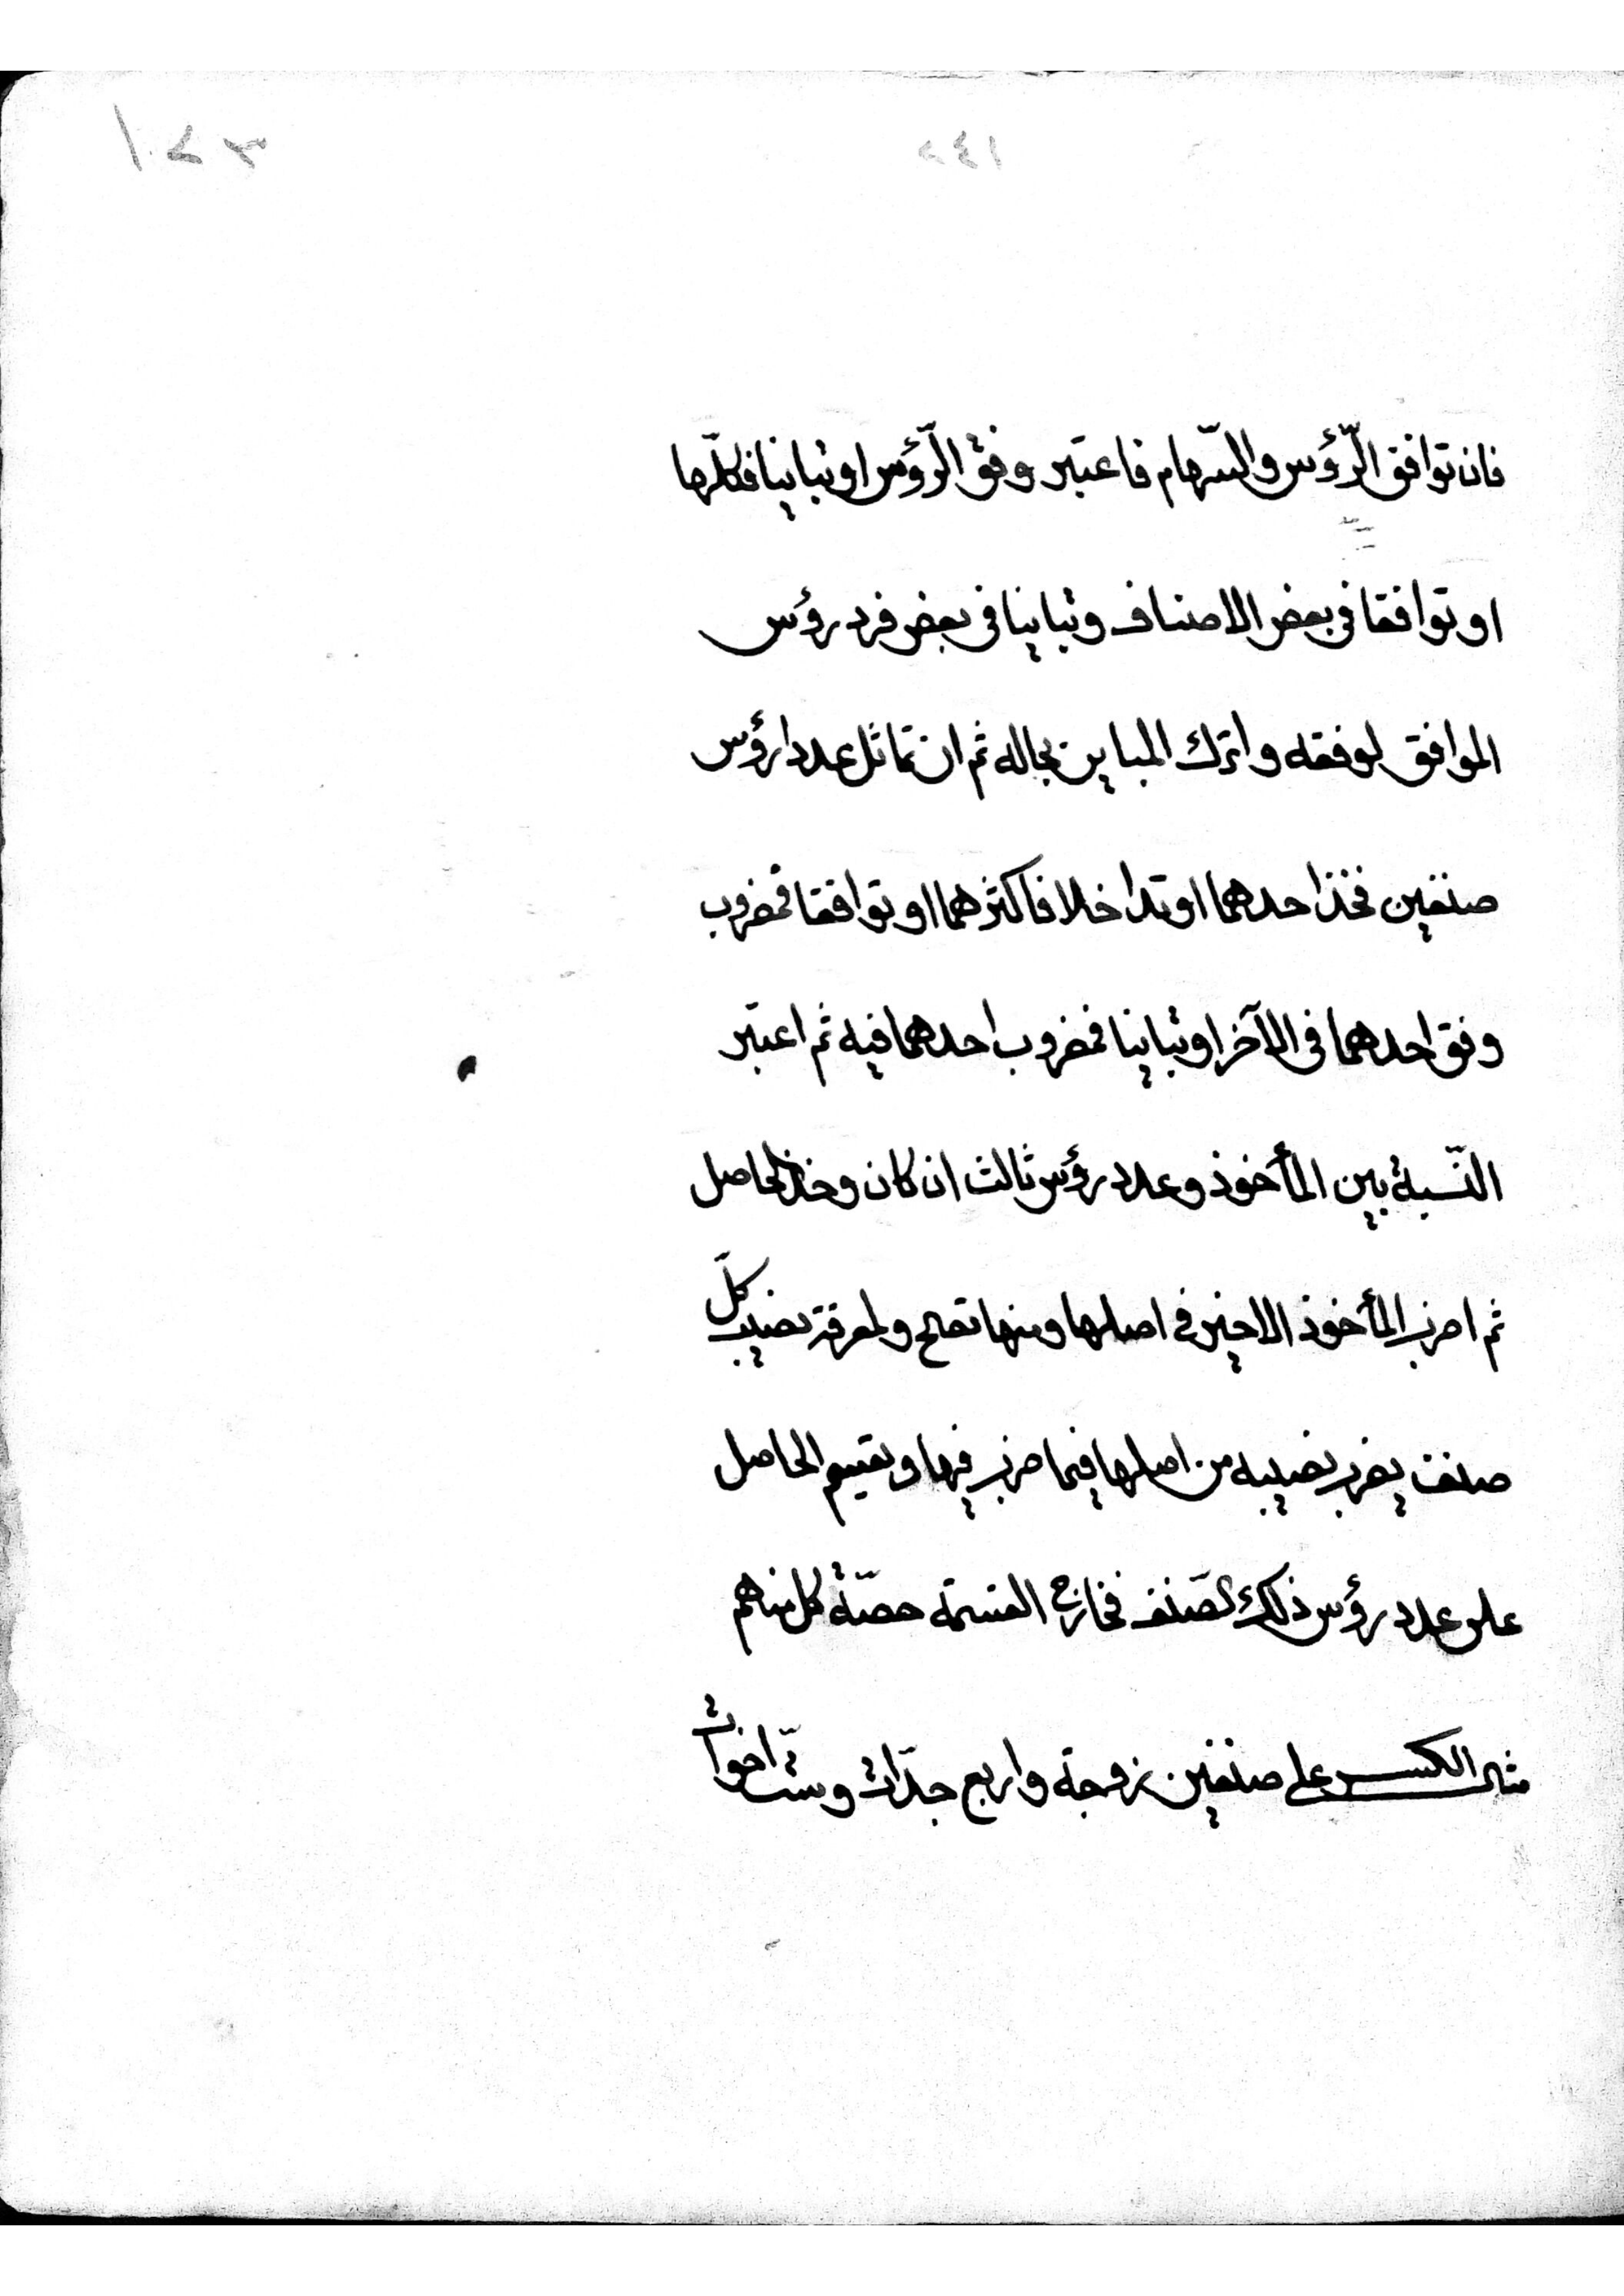 فان توافق الرّؤس والسّهام فاعتبر وفق الرّؤس او تباينا فكلّها
او توافقا فى بعض الاصناف وتباينا فى بعض فرد رؤس
الموافق لوفقه واترك المباين بحاله ثم ان تماثل عددا رؤس
صنفين فخذ احدهما او تداخلا فاكثرهما او توافقا فمضروب
وفق احدهما فى الآخر او تباينا فمضروب احدهما فيه ثم اعتبر
النّسبة بين المأخوذ وعدد رؤس ثالث ان كان وخذ الحاصل
ثم اضرب المأخوذ الاخير فى اصلها ومنها تصح ولمعرفة نصيب كلّ
صنف يضرب نصيبه من اصلها فيما ضرب فيها ويقسم الحاصل
على عدد رؤس ذلك الصّنف فخارج القسمة حصّة كل منهم
مثال الكسر على صنفين زوجة واربع جدّات وستّ اخوات